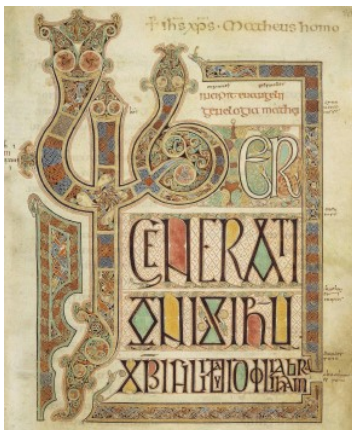 + ihs xps. Matheus homo
incipit euangelii
genelogia mathei
LIBER
GENERATI
ONIS IHU
XPI FILII DAVID FILII ABRA
HAM